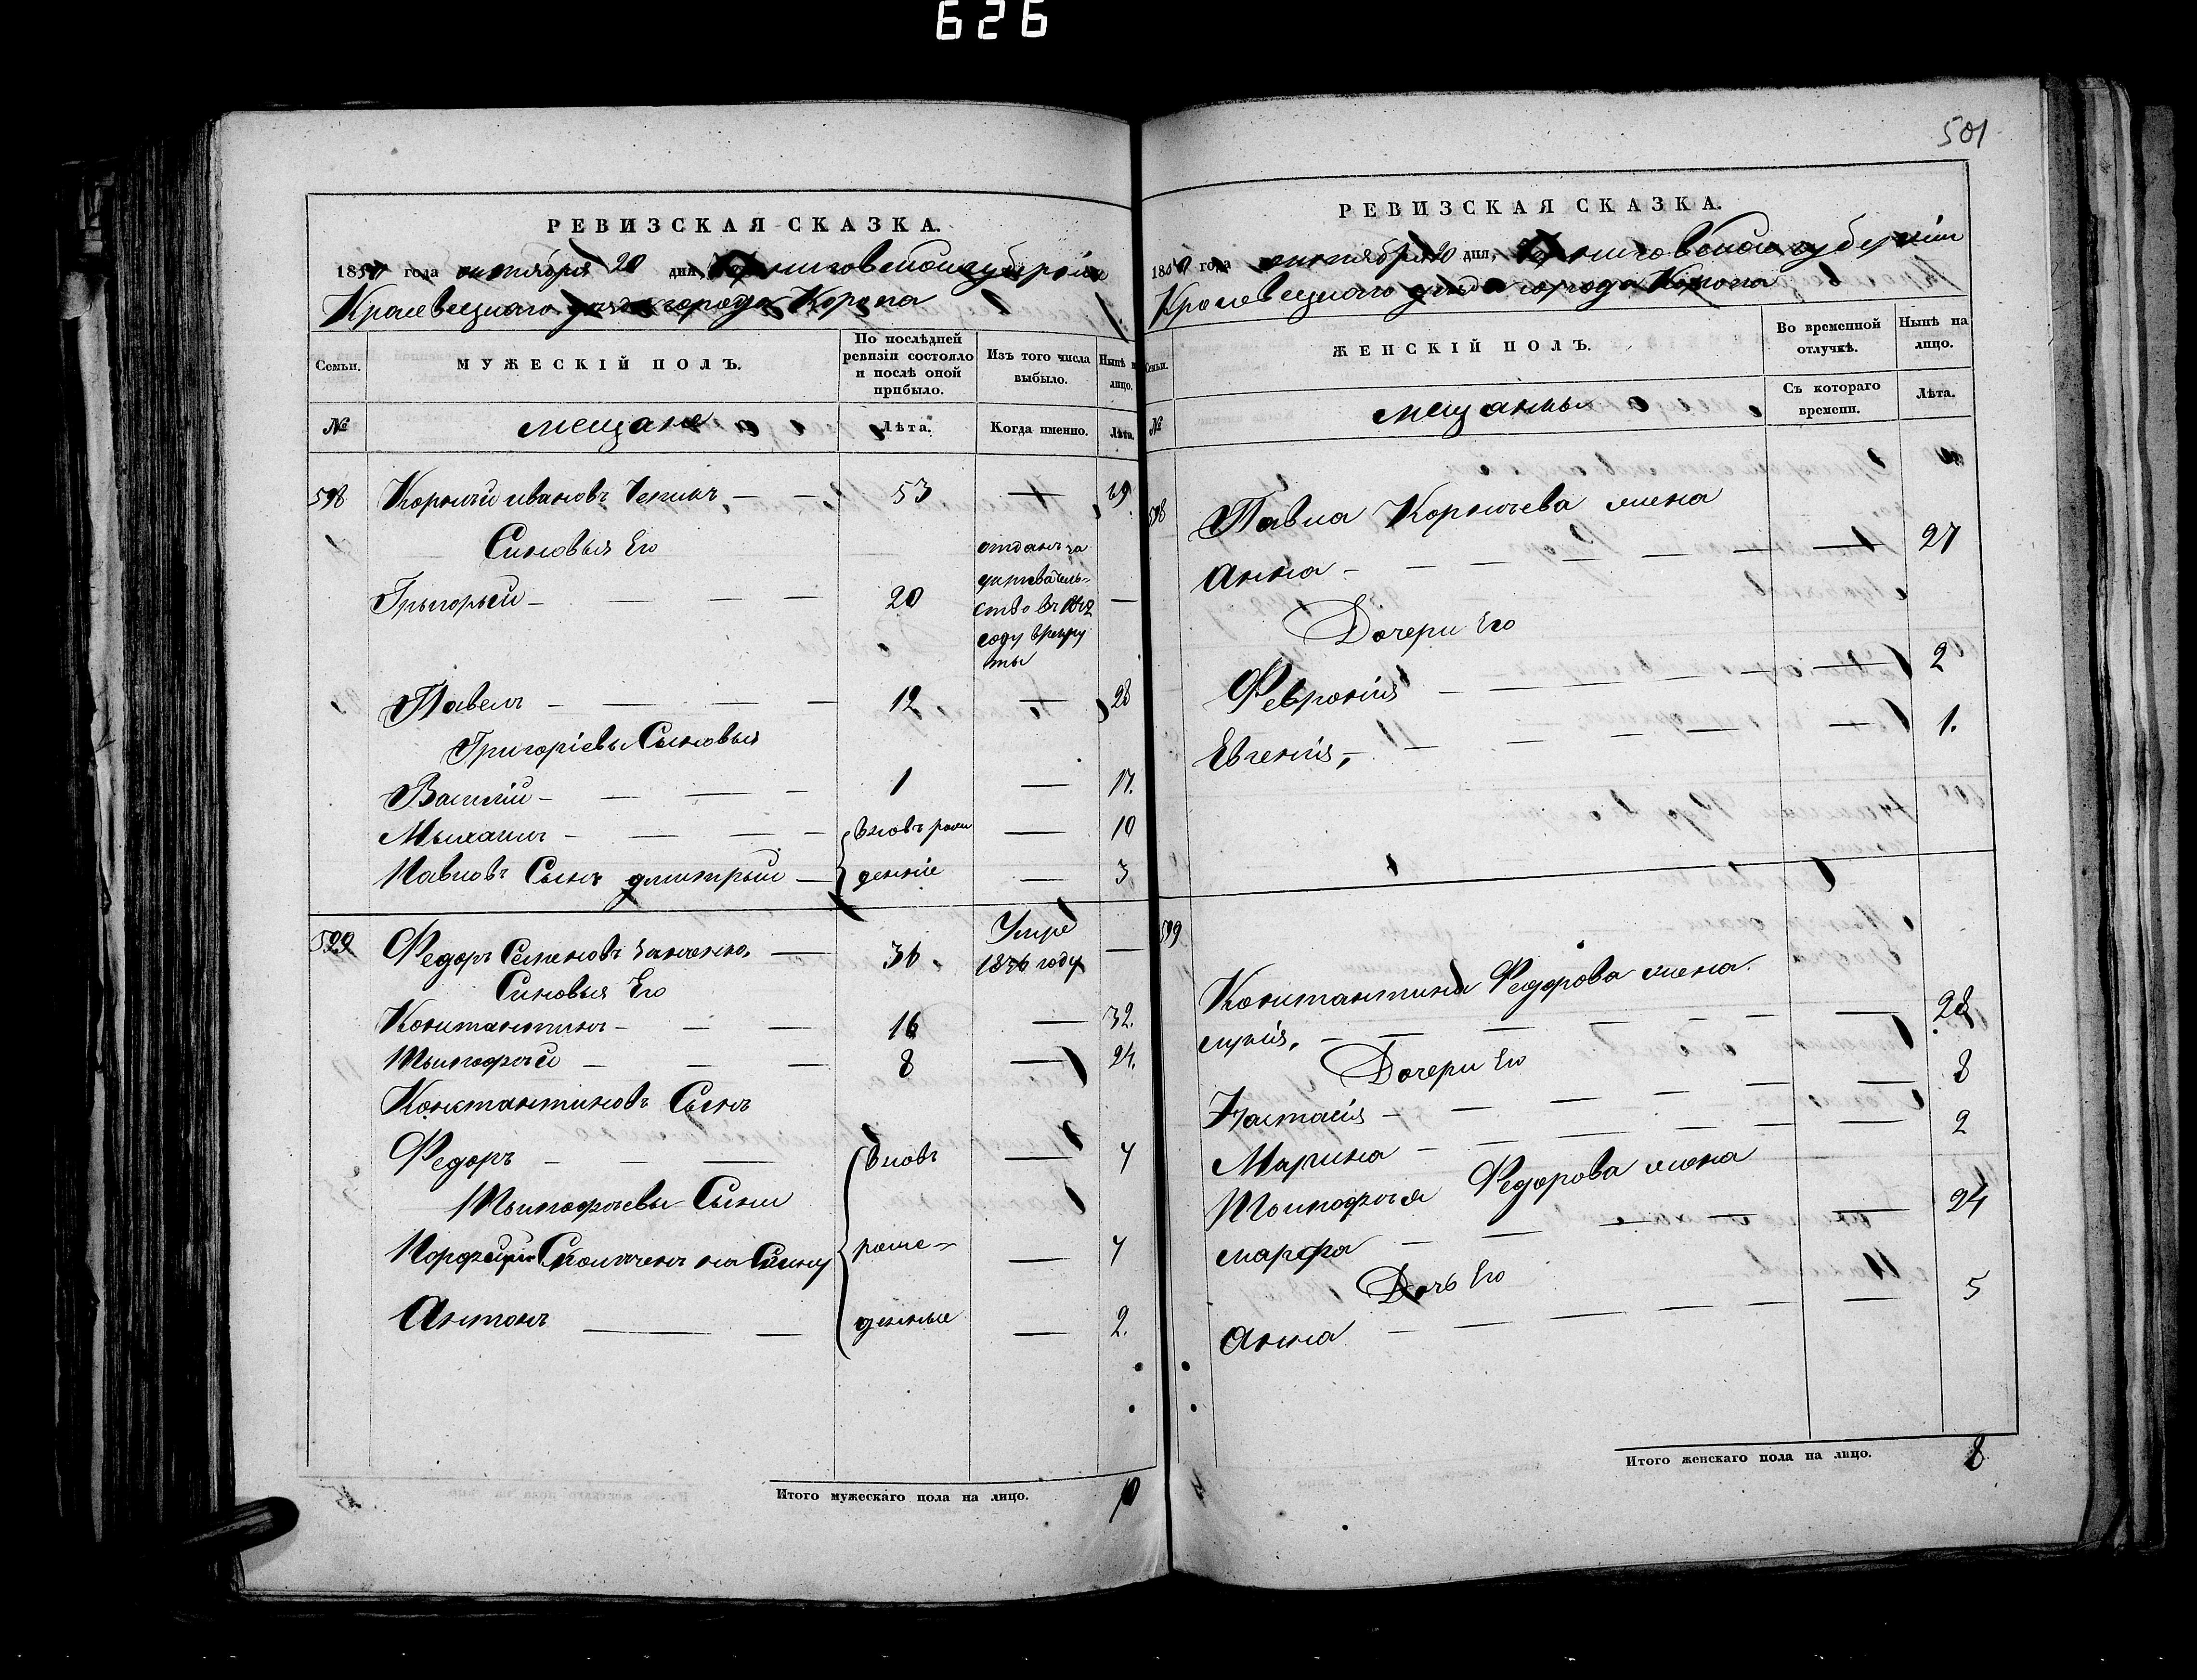 626
РЕВИЗСКАЯ СКАЗКА.
1850 года октября 20 дня, Черниговской губерніи
Кролевецкаго уезда города Коропа
Семьи.
МУЖЕСКІЙ ПОЛЪ.
По послѣдней ревизіи состояло и послѣ оной прибыло.
Изъ того числа выбыло.
Нынѣ на лицо.
№
мещане
Лѣта.
Когда именно.
Лѣта.
598 Корнѣй ивановъ — — 53 — 69
Синовья Его
Григорьей — — — 20 отданъ за
ство въ
году врекру
ты —
Павелъ — — — 12 — 28
Григоріевы Сыновья
Василій — — — 1 — 17.
Мыхаилъ — — — вновь рож — 10
Павловъ Сынъ дмитрый — денніе — 3
599 Федоръ Семеновъ — 36 Умре 1836 году —
Синовья Его
Константинъ — — — 16 — 32.
Тымофѣй — — — 8 — 24.
Константиновъ Сынъ
Федоръ — — — вновь — 4
Тымофѣевы Сыни
роже — 4
Антонъ — — денные — 2.
Итого мужескаго пола на лицо. 10
501
РЕВИЗСКАЯ СКАЗКА.
1850 года октября 20 дня, Черниговской губерніи
Кролевецкаго уезда города Коропа
Семьи.
ЖЕНСКІЙ ПОЛЪ.
Во временной отлучкѣ.
Нынѣ на лицо.
№
мещанкы
Съ котораго времени.
Лѣта.
598 Павла Корнѣева жена
анна — — — — 27
Дочери Его
Февронія — — — — 2
Евгенія, — — — — 1.
599
Константина Федорова жена
— — — — 28
Дочери Его
Настасія — — — — 8
Марина — — — — 2
Тымофѣя Федорова жена
марфа — — — — 24
Дочь Его
анна — — — — 5
Итого женскаго пола на лицо. 8